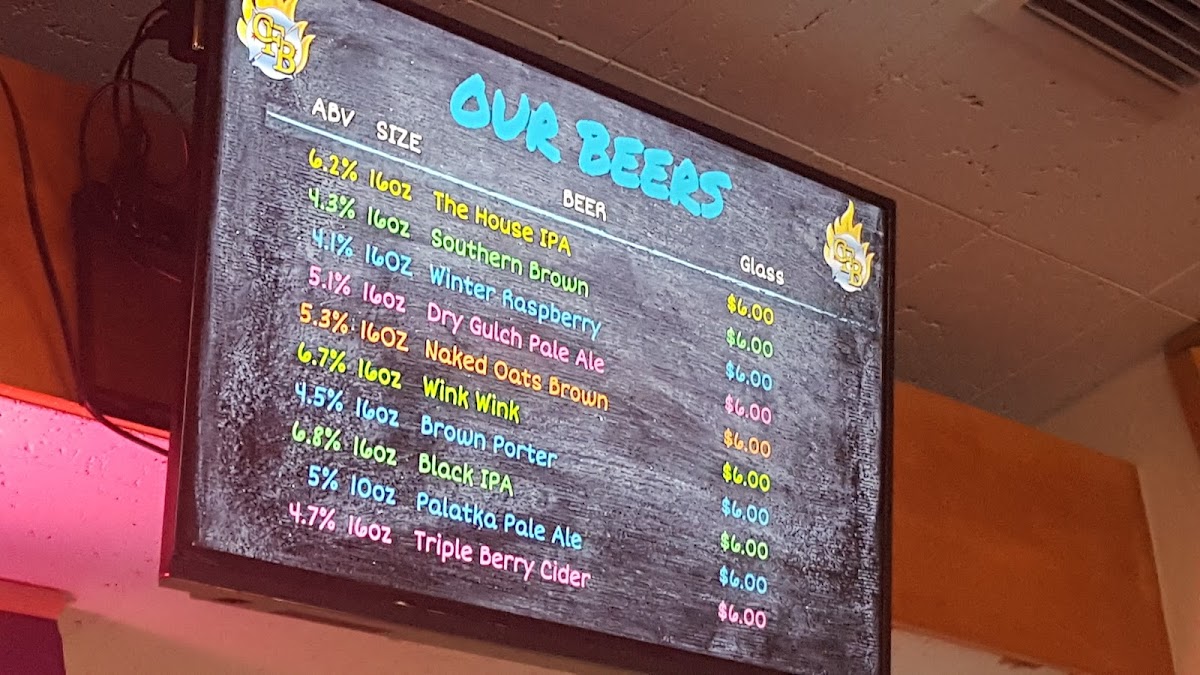 CFB
OUR BEERS
ABV SIZE BEER Glass
CFB
6.2% 16oz The House IPA $6.00
4.3% 16oz Southern Brown $6.00
4.1% 16OZ Winter Raspberry $6.00
5.1% 16oz Dry Gulch Pale Ale $6.00
5.3% 16OZ Naked Oats Brown $6.00
6.7% 16oz Wink Wink $6.00
4.5% 16oz Brown Porter $6.00
6.8% 16oz Black IPA $6.00
5% 10oz Palatka Pale Ale $6.00
4.7% 16oz Triple Berry Cider $6.00